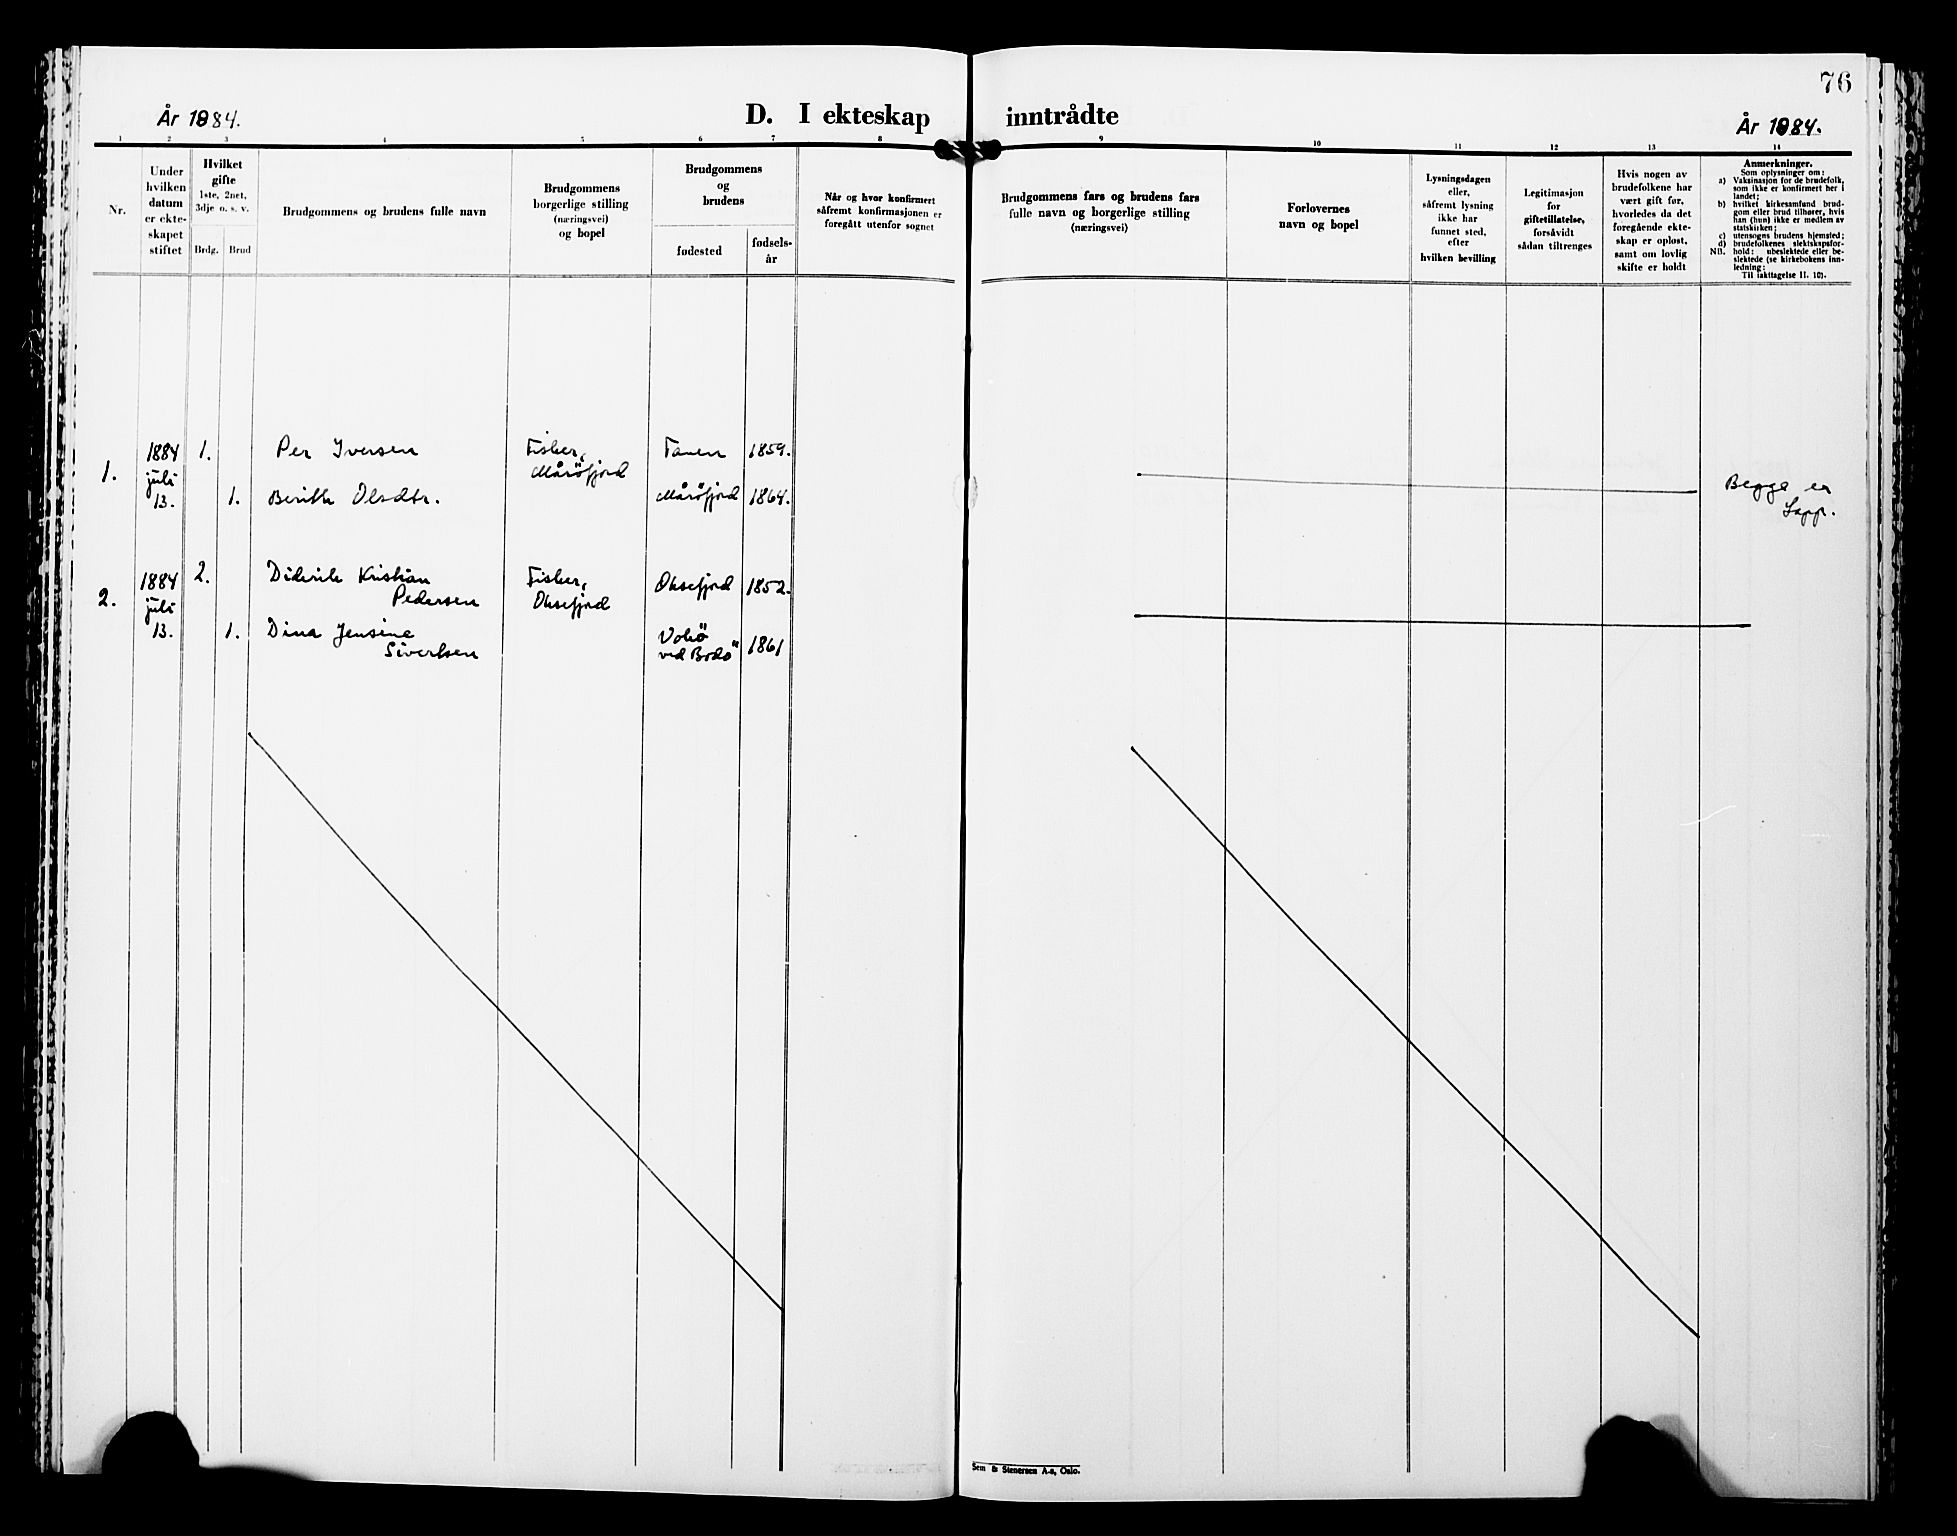 76
År 1884.
D. I ekteskap inntrådte
År 1884.
1 2 3 4 5 6 7 8 9 10 11 12 13 14
Nr.
Under
hvilken
datum
er ekte-
skapet
stiftet
Hvilket
gifte
1ste, 2net,
3dje o. s. v.
Brdg. Brud
Brudgommens og brudens fulle navn
Brudgommens
borgerlige stilling
(næringsvei)
og bopel
Brudgommens
og
brudens
fødested
fødsels-
år
Når og hvor konfirmert
såfremt konfirmasjonen er
foregått utenfor sognet
Brudgommens fars og brudens fars
fulle navn og borgerlige stilling
(næringsvei)
Forlovernes
navn og bopel
Lysningsdagen
eller,
såfremt lysning
ikke har
funnet sted,
efter
hvilken bevilling
Legitimasjon
for
giftetillatelse,
forsåvidt
sådan tiltrenges
Hvis nogen av
brudefolkene har
vært gift før,
hvorledes da det
foregående ekte-
skap er opløst,
samt om lovlig
skifte er holdt
Anmerkninger.
Som oplysninger om:
a) Vaksinasjon for de brudefolk,
som ikke er konfirmert her i
landet;
b) hvilket kirkesamfund brud-
gom eller brud tilhører, hvis
han (hun) ikke er medlem av
statskirken;
c) utensogns brudens hjemsted;
d) brudefolkenes slektskapsfor-
NB. hold: ubeslektede eller be-
slektede (se kirkebokens inn-
ledning;
Til iakttagelse II. 10).
1.
1884
juli
13.
1.
Per Iversen
Fisker,
Måröfjord
Tanen
1859.
1.
Berith Olsdtr.
Måröfjord
1864.
Begge er
Lapp.
2.
1884
juli
13.
2.
Diderik Kristian
Pedersen
Fisker,
Oksefjord
Oksefjord
1852.
1.
Dina Jensine
Sivertsen
ved Bodö
1861
Sem & Stenersen A-s, Oslo.